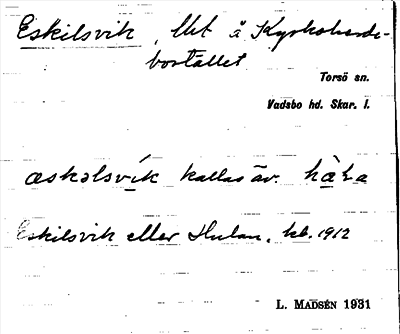 Eskilsvik, lht å Kyrkoherde-
bostället
Torsö sn.
Vadsbo hd. Skar. l.
æskəlsvík kallas äv.
Eskilsvik eller Hulan, kb. 1912
L. MADSÉN 1931